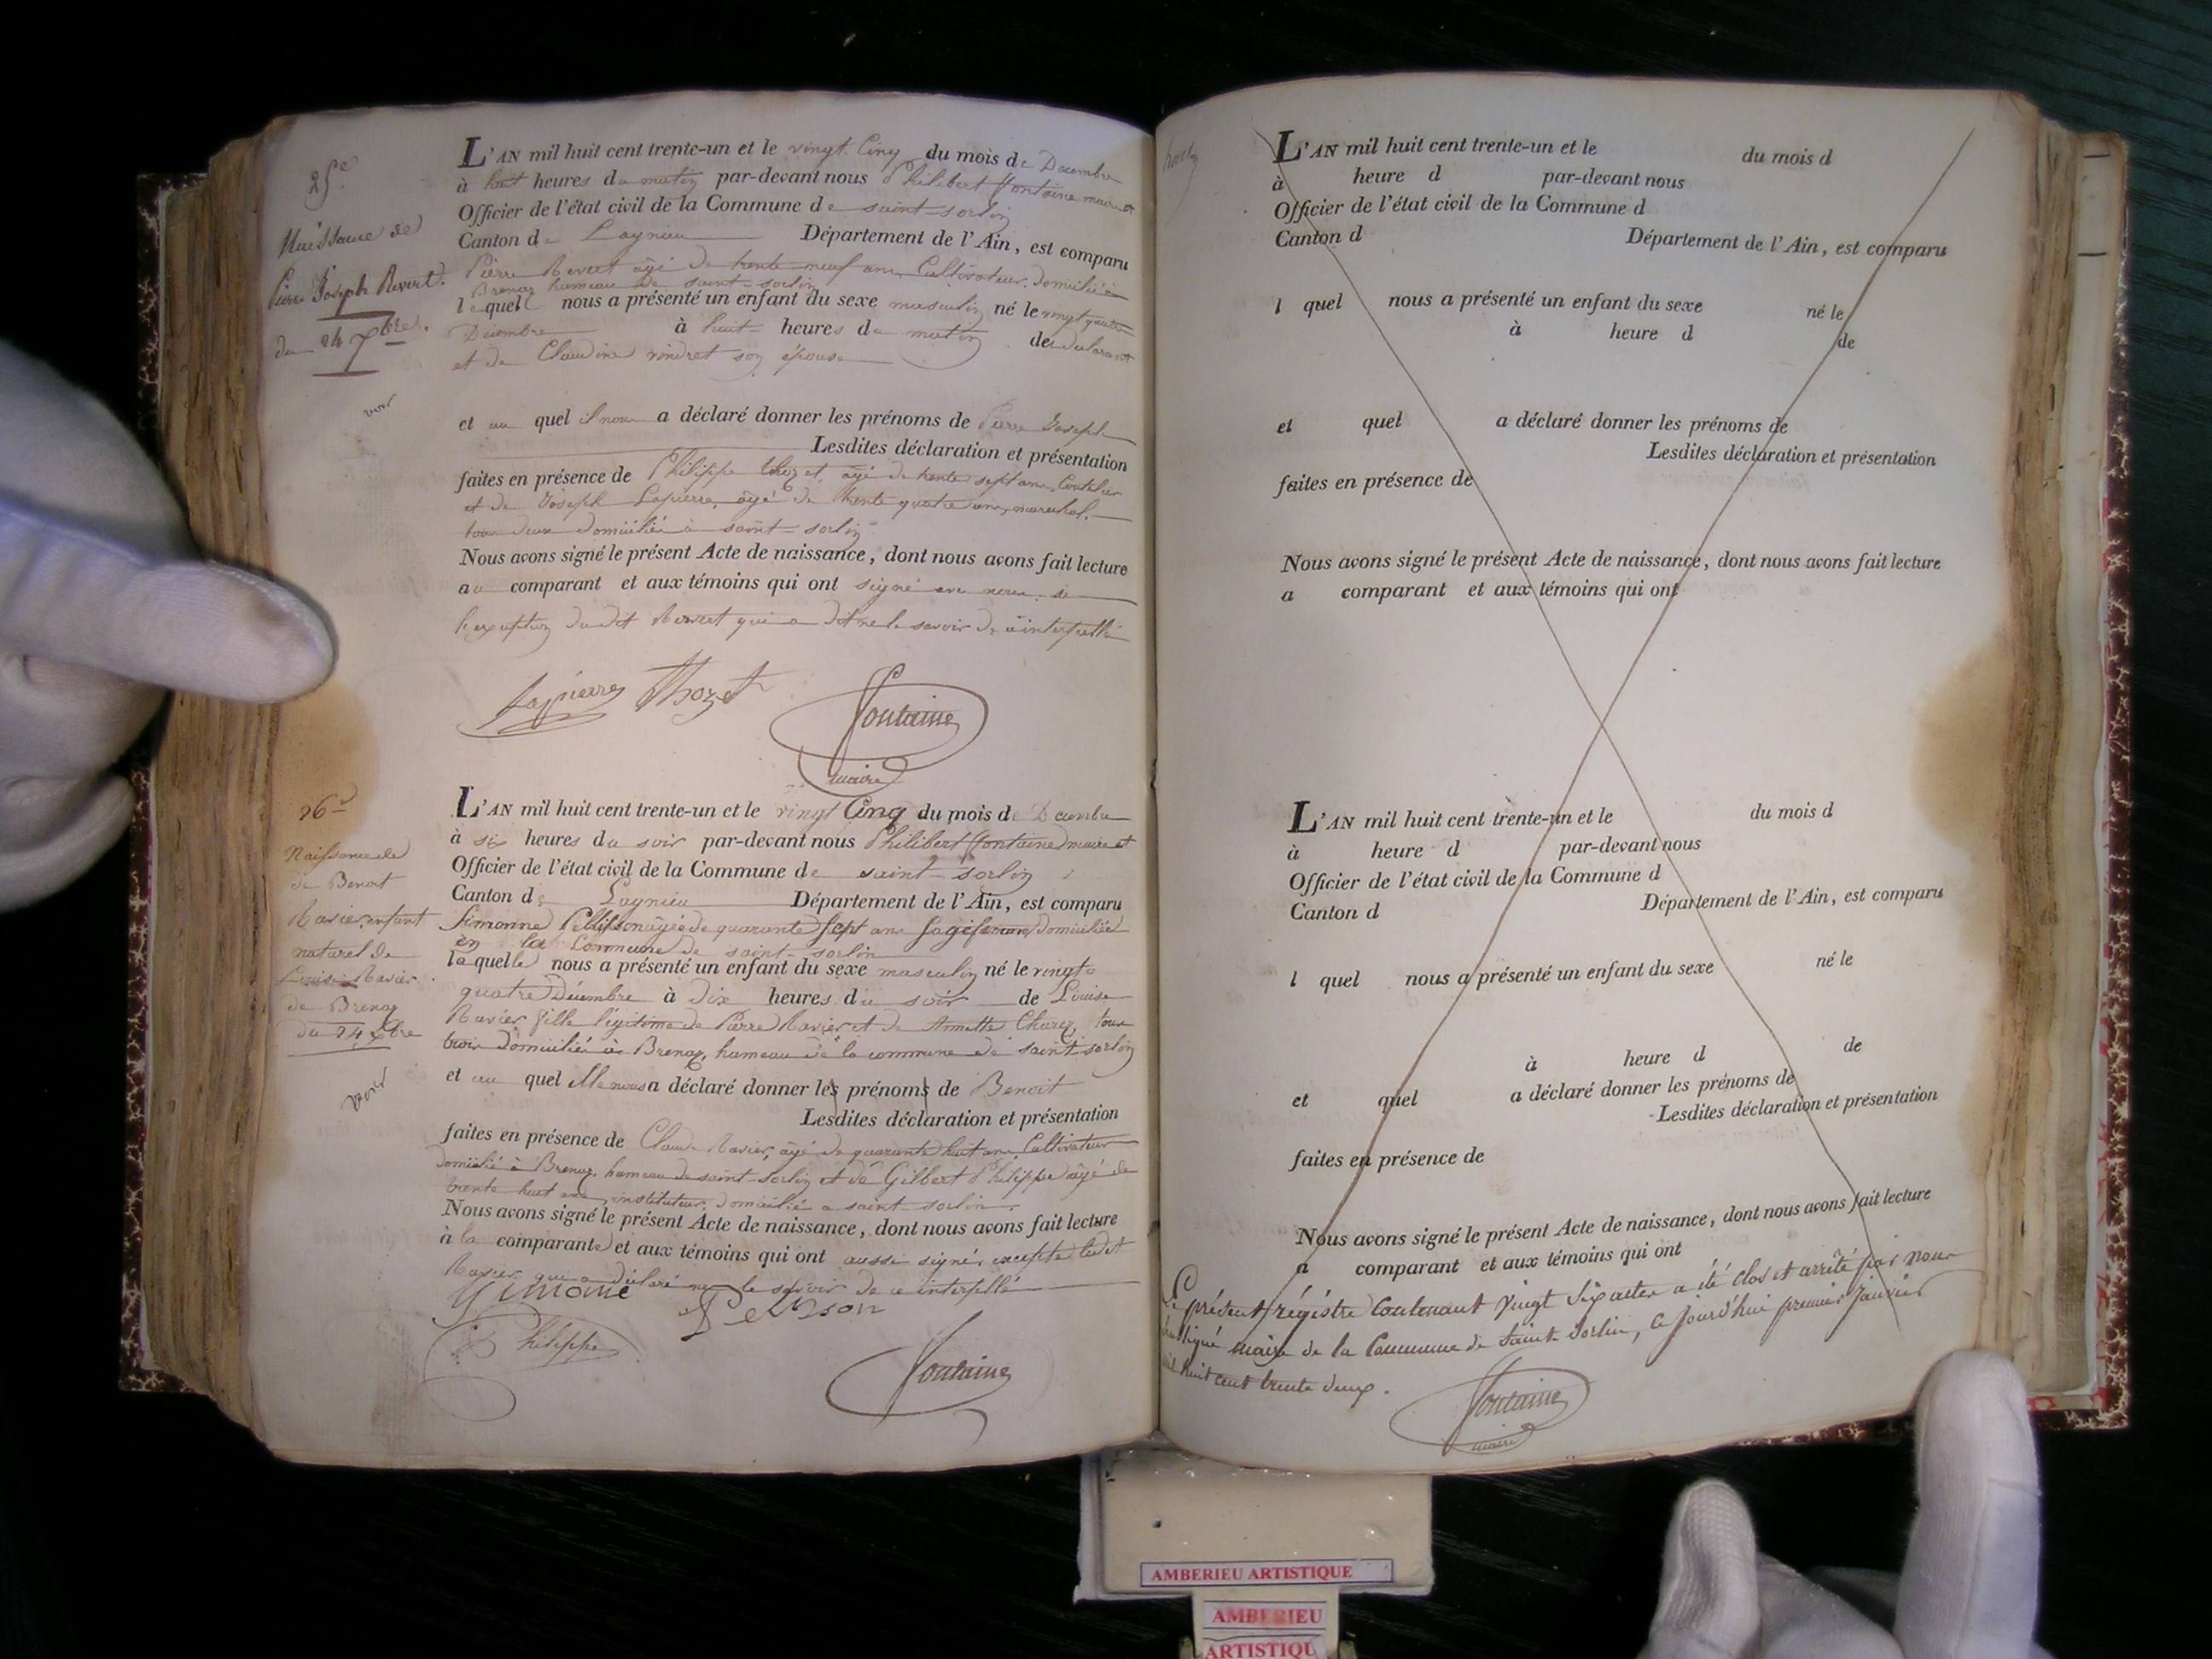 25e
Naissance de
Pierre Joseph Revert.
du 24 Xbre.
voir
L'AN mil huit cent trente-un et le vingt Cinq du mois de Decembre
à huit heures du matin par-devant nous Philibert Fontaine maire et
Officier de l'état civil de la Commune de saint-sorlin
Canton de Lagnieu Département de l'Ain, est comparu
Pierre Revert âgé de trente neuf ans, Cultivateur, domicilié à
Brenaz hameau de saint-sorlin
lequel nous a présenté un enfant du sexe masculin né le vingt quatre
Décembre à huit heures du matin de déclarant
et de Claudine vindret son épouse
et au quel il nous a déclaré donner les prénoms de Pierre Joseph
Lesdites déclaration et présentation
faites en présence de Philippe thozet, âgé de trente sept ans, Coutelier
et de Joseph Lapierre, âgé de trente quatre ans, marechal,
tous deux domicilié à saint-sorlin
Nous avons signé le présent Acte de naissance, dont nous avons fait lecture
au comparant et aux témoins qui ont signé avec nous, à
l'exception du dit Revert qui a dit ne le savoir de ce interpellé
Lapierre Thozet Fontaine
maire
26e
Naissance de
de Benoit
Ravier, enfant
naturel de
Louise Ravier
de Brenaz
du 24 Xbre
voir
L'AN mil huit cent trente-un et le vingt Cinq du mois de Decembre
à six heures du soir par-devant nous Philibert Fontaine maire et
Officier de l'état civil de la Commune de saint-sorlin
Canton de Lagnieu Département de l'Ain, est comparu
Simonne Pellisson âgée de quarante sept ans sagefemme domiciliée
en la Commune de saint-sorlin
laquelle nous a présenté un enfant du sexe masculin né le vingt
quatre Décembre à dix heures du soir de Louise
Ravier fille légitime de Pierre Ravier et de Annette Charez, tous
trois domicilié à Brenaz, hameau de la commune de saint sorlin
et au quel elle nous a déclaré donner les prénoms de Benoit
Lesdites déclaration et présentation
faites en présence de Claude Ravier, âgé de quarante huit ans, Cultivateur
domicilié à Brenaz, hameau de saint-sorlin et de Gilbert Philippe âgé de
trente huit ans, instituteur, domicilié a saint-sorlin.
Nous avons signé le présent Acte de naissance, dont nous avons fait lecture
à la comparante et aux témoins qui ont aussi signé, excepté ledit
Ravier qui a déclaré ne le savoir de ce interpellé
Simone Pelison
Philippe
Fontaine
L'AN mil huit cent trente-un et le du mois d
à heure d par-devant nous
Officier de l'état civil de la Commune d
Canton d Département de l'Ain, est comparu
l quel nous a présenté un enfant du sexe né le
à heure d de
et quel a déclaré donner les prénoms de
Lesdites déclaration et présentation
faites en présence de
Nous avons signé le présent Acte de naissance, dont nous avons fait lecture
a comparant et aux témoins qui ont
L'AN mil huit cent trente-un et le du mois d
à heure d par-devant nous
Officier de l'état civil de la Commune d
Canton d Département de l'Ain, est comparu
l quel nous a présenté un enfant du sexe né le
à heure d de
et quel a déclaré donner les prénoms de
Lesdites déclaration et présentation
faites en présence de
Nous avons signé le présent Acte de naissance, dont nous avons fait lecture
a comparant et aux témoins qui ont
Le présent régistre Contenant vingt Six actes a été clos et arrêté par nous
soussigné maire de la Commune de Saint-Sorlin, ce jourd'hui premier janvier
mil huit cent trente deux.
Fontaine
maire
AMBERIEU ARTISTIQUE
AMBERIEU
ARTISTIQU